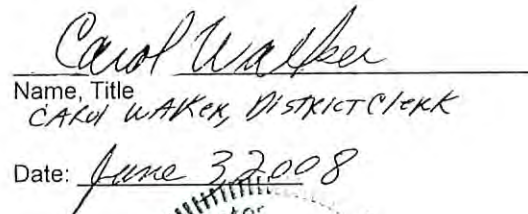 Carol Walker
Name, Title
CAROL WALKER, DISTRICT CLERK
Date: June 3, 2008